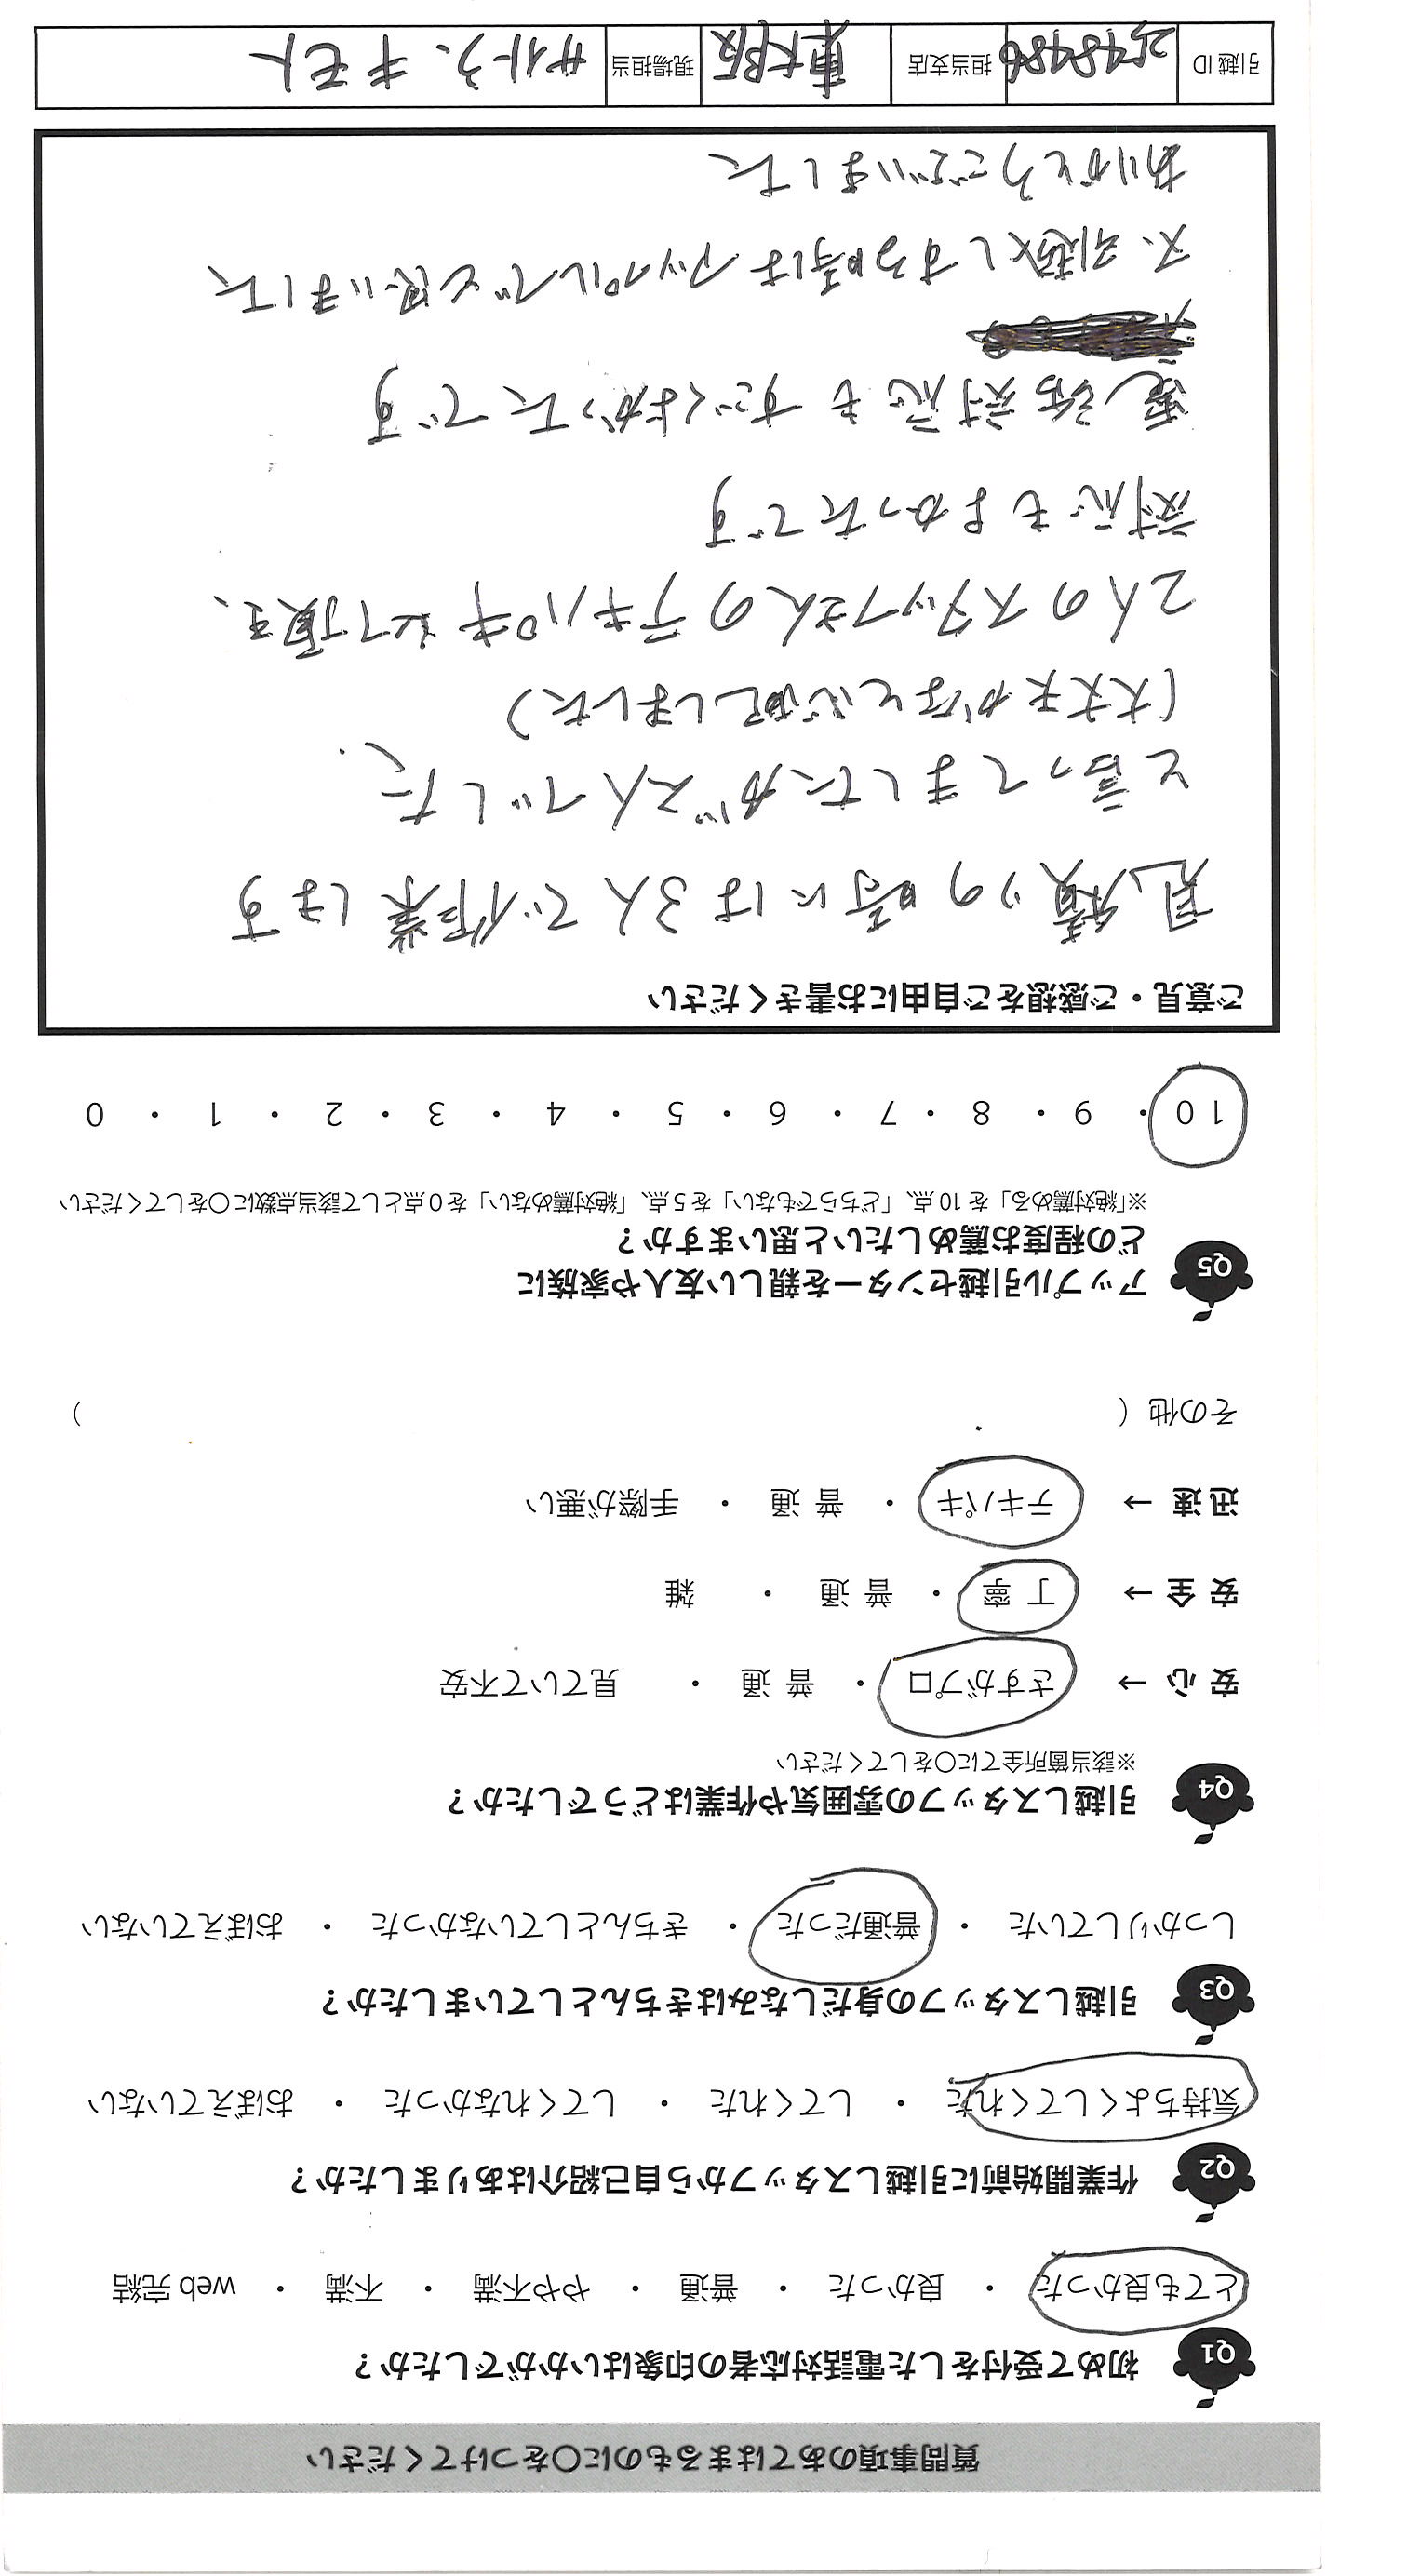 質問事項のあてはまるものに〇をつけてください
Q1 初めて受付をした電話対応者の印象はいかがでしたか？
とても良かった ・ 良かった ・ 普通 ・ やや不満 ・ 不満 ・ web 完結
Q2 作業開始前に引越しスタッフから自己紹介はありましたか？
気持ちよくしてくれた ・ してくれた ・ してくれなかった ・ おぼえていない
Q3 引越しスタッフの身だしなみはきちんとしていましたか？
しっかりしていた ・ 普通だった ・ きちんとしていなかった ・ おぼえていない
Q4 引越しスタッフの雰囲気や作業はどうでしたか？
※該当箇所全てに〇をしてください
安 心 → さすがプロ ・ 普 通 ・ 見ていて不安
安 全 → 丁 寧 ・ 普 通 ・ 雑
迅 速 → テキパキ ・ 普 通 ・ 手際が悪い
その他（ ）
Q5 アップル引越センターを親しい友人や家族に
どの程度お薦めしたいと思いますか？
※「絶対薦める」を 10 点、「どちらでもない」を 5 点、「絶対薦めない」を 0 点として該当点数に〇をしてください
10 ・ 9 ・ 8 ・ 7 ・ 6 ・ 5 ・ 4 ・ 3 ・ 2 ・ 1 ・ 0
ご意見・ご感想をご自由にお書きください
見積りの時には3人で作業します
と言ってましたが2人でした
(大丈夫かなと心配しました)
2人のスタッフさんのテキパキと丁寧
対応もよかったです
電話対応もすごくよかったです
又、引越しする時はアップルでと思いました
ありがとうございました
引越 ID 担当支店 東大阪 現場担当 サイトう、キモト